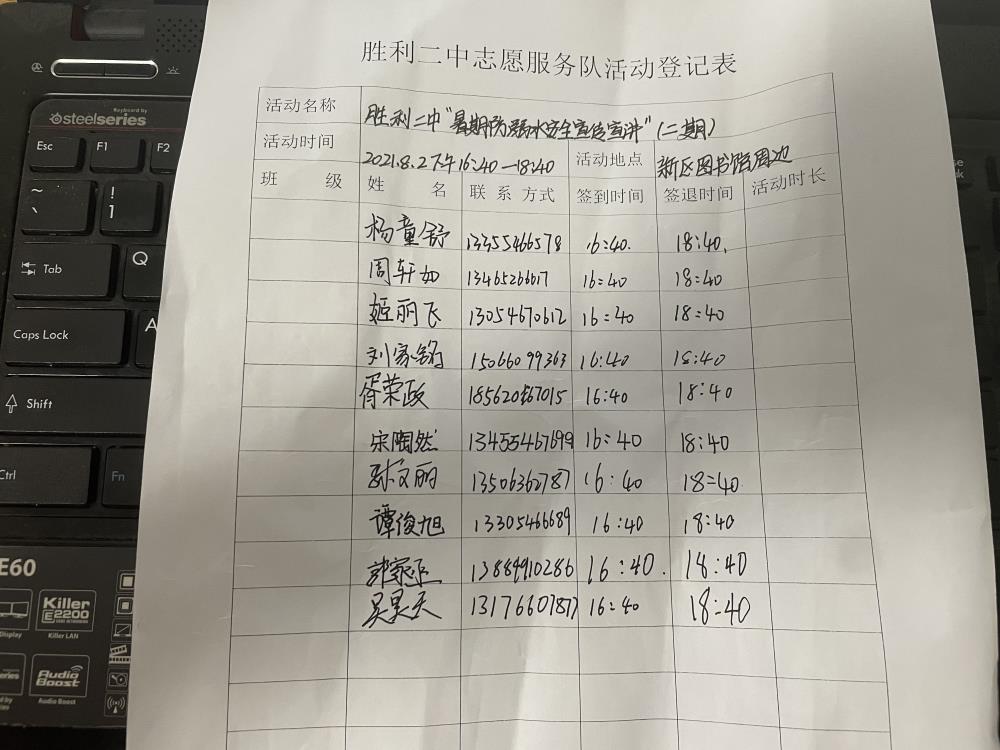 胜利二中志愿服务队活动登记表
活动名称 胜利二中"暑期防溺水安全宣传宣讲"(二期)
活动时间 2021.8.2下午16:40—18:40 活动地点 新区图书馆周边
班 级 姓 名 联系方式 签到时间 签退时间 活动时长
杨童舒 13355466578 16:40. 18:40.
周轩如 13465266617 16:40 18:40
姬丽飞 13054670612 16:40 18:40
刘家铭 15066099363 16:40 18:40
胥荣政 18562067015 16:40 18:40
宋陶然 13455467699 16:40 18:40
孙文丽 13506362787 16:40 18:40
谭俊旭 13305466689 16:40 18:40
郭家丞 13884910286 16:40. 18:40
吴昊天 13176607877 16:40 18:40
Keyboard by
steelseries
Esc F1 F2
~ 、 ! 1
Tab Q
Caps Lock A
Shift
Ctrl Fn
E60
Display
Killer
E2200
Killer LAN
Audio
Boost
Audio Boost